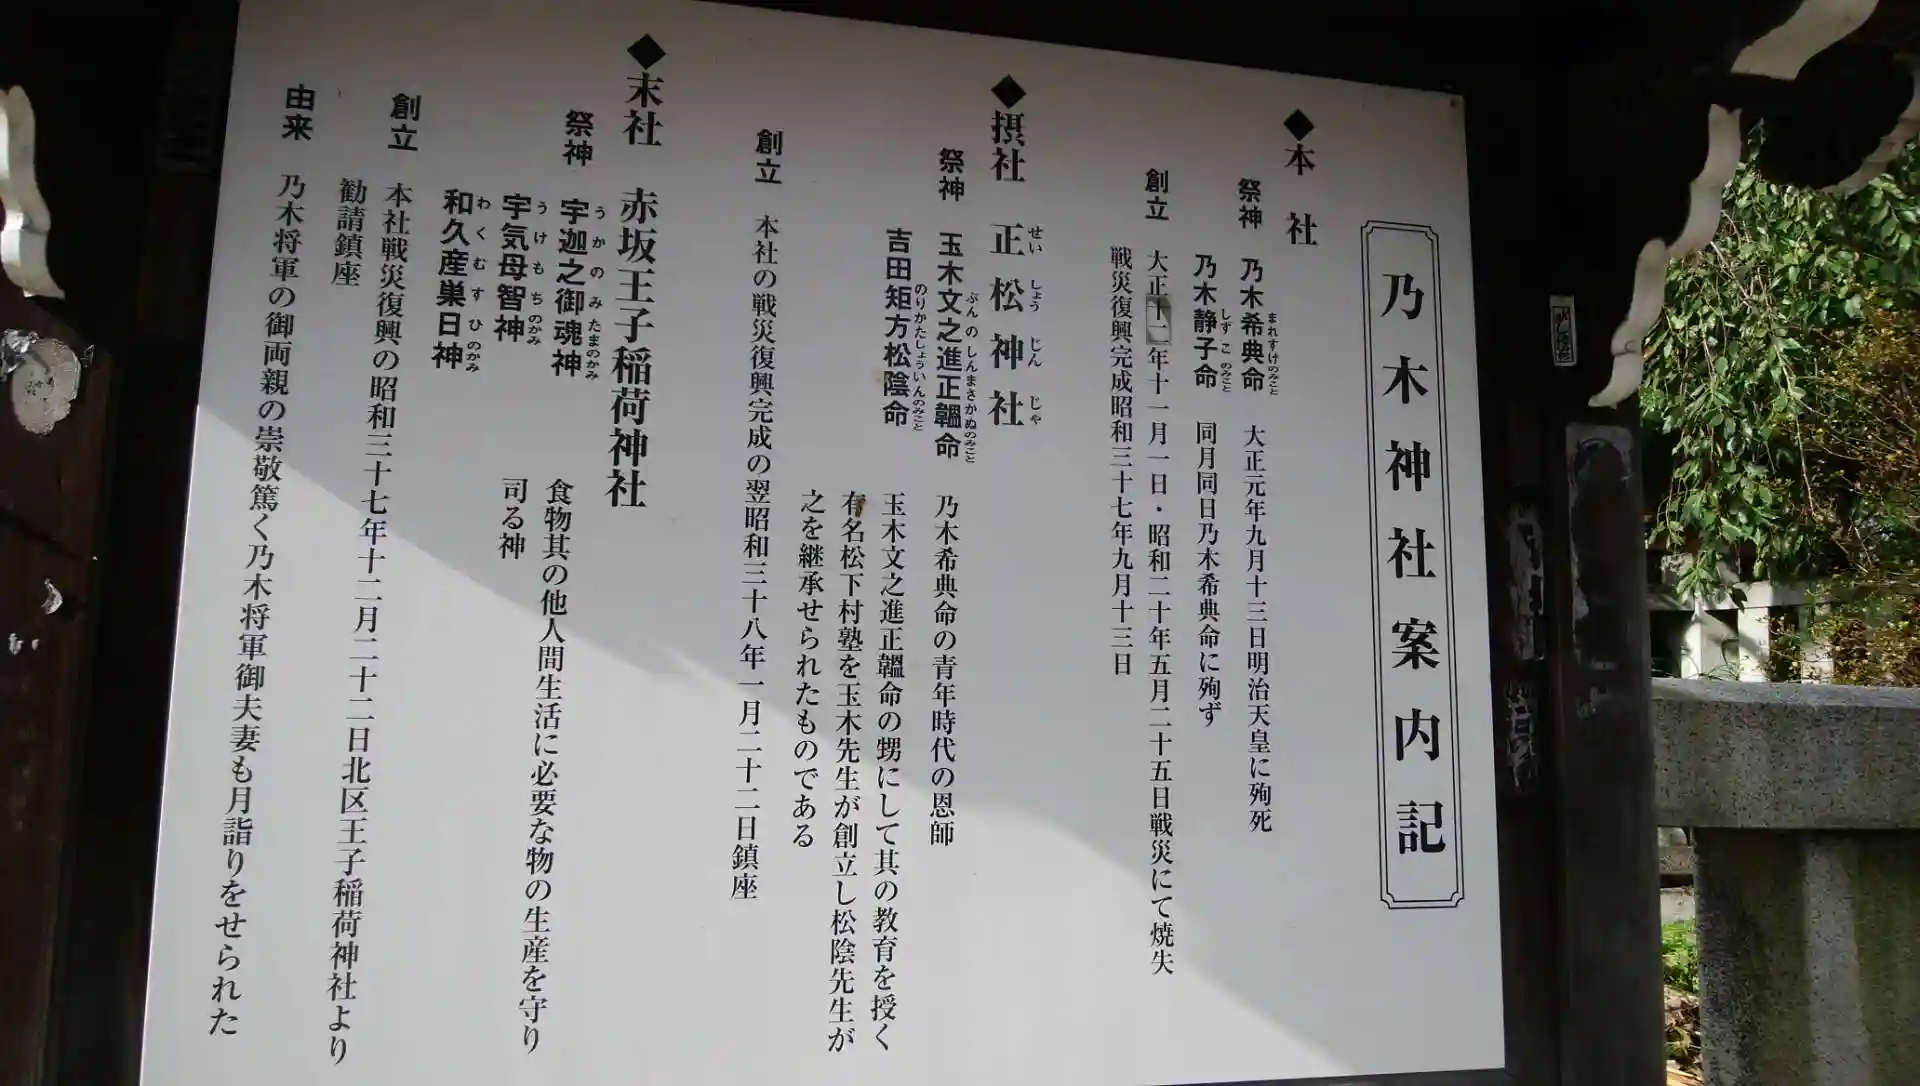 乃木神社案内記
◆本社
祭神 乃木希典命 大正元年九月十三日明治天皇に殉死
まれすけのみこと
乃木静子命 同月同日乃木希典命に殉ず
しずこのみこと
創立 大正十二年十一月一日・昭和二十年五月二十五日戦災にて焼失
戦災復興完成昭和三十七年九月十三日
◆摂社 正松神社
せいしょうじんじゃ
祭神 玉木文之進正韞命 乃木希典命の青年時代の恩師
ぶんのしんまさかぬのみこと
玉木文之進正韞命の甥にして其の教育を授く
吉田矩方松陰命
のりかたしょういんのみこと
有名松下村塾を玉木先生が創立し松陰先生が
之を継承せられたものである
創立 本社の戦災復興完成の翌昭和三十八年一月二十二日鎮座
◆末社 赤坂王子稲荷神社
祭神 宇迦之御魂神 食物其の他人間生活に必要な物の生産を守り
うかのみたまのかみ
宇気母智神 司る神
うけもちのかみ
和久産巣日神
わくむすひのかみ
創立 本社戦災復興の昭和三十七年十二月二十二日北区王子稲荷神社より
勧請鎮座
由来 乃木将軍の御両親の崇敬篤く乃木将軍御夫妻も月詣りをせられた